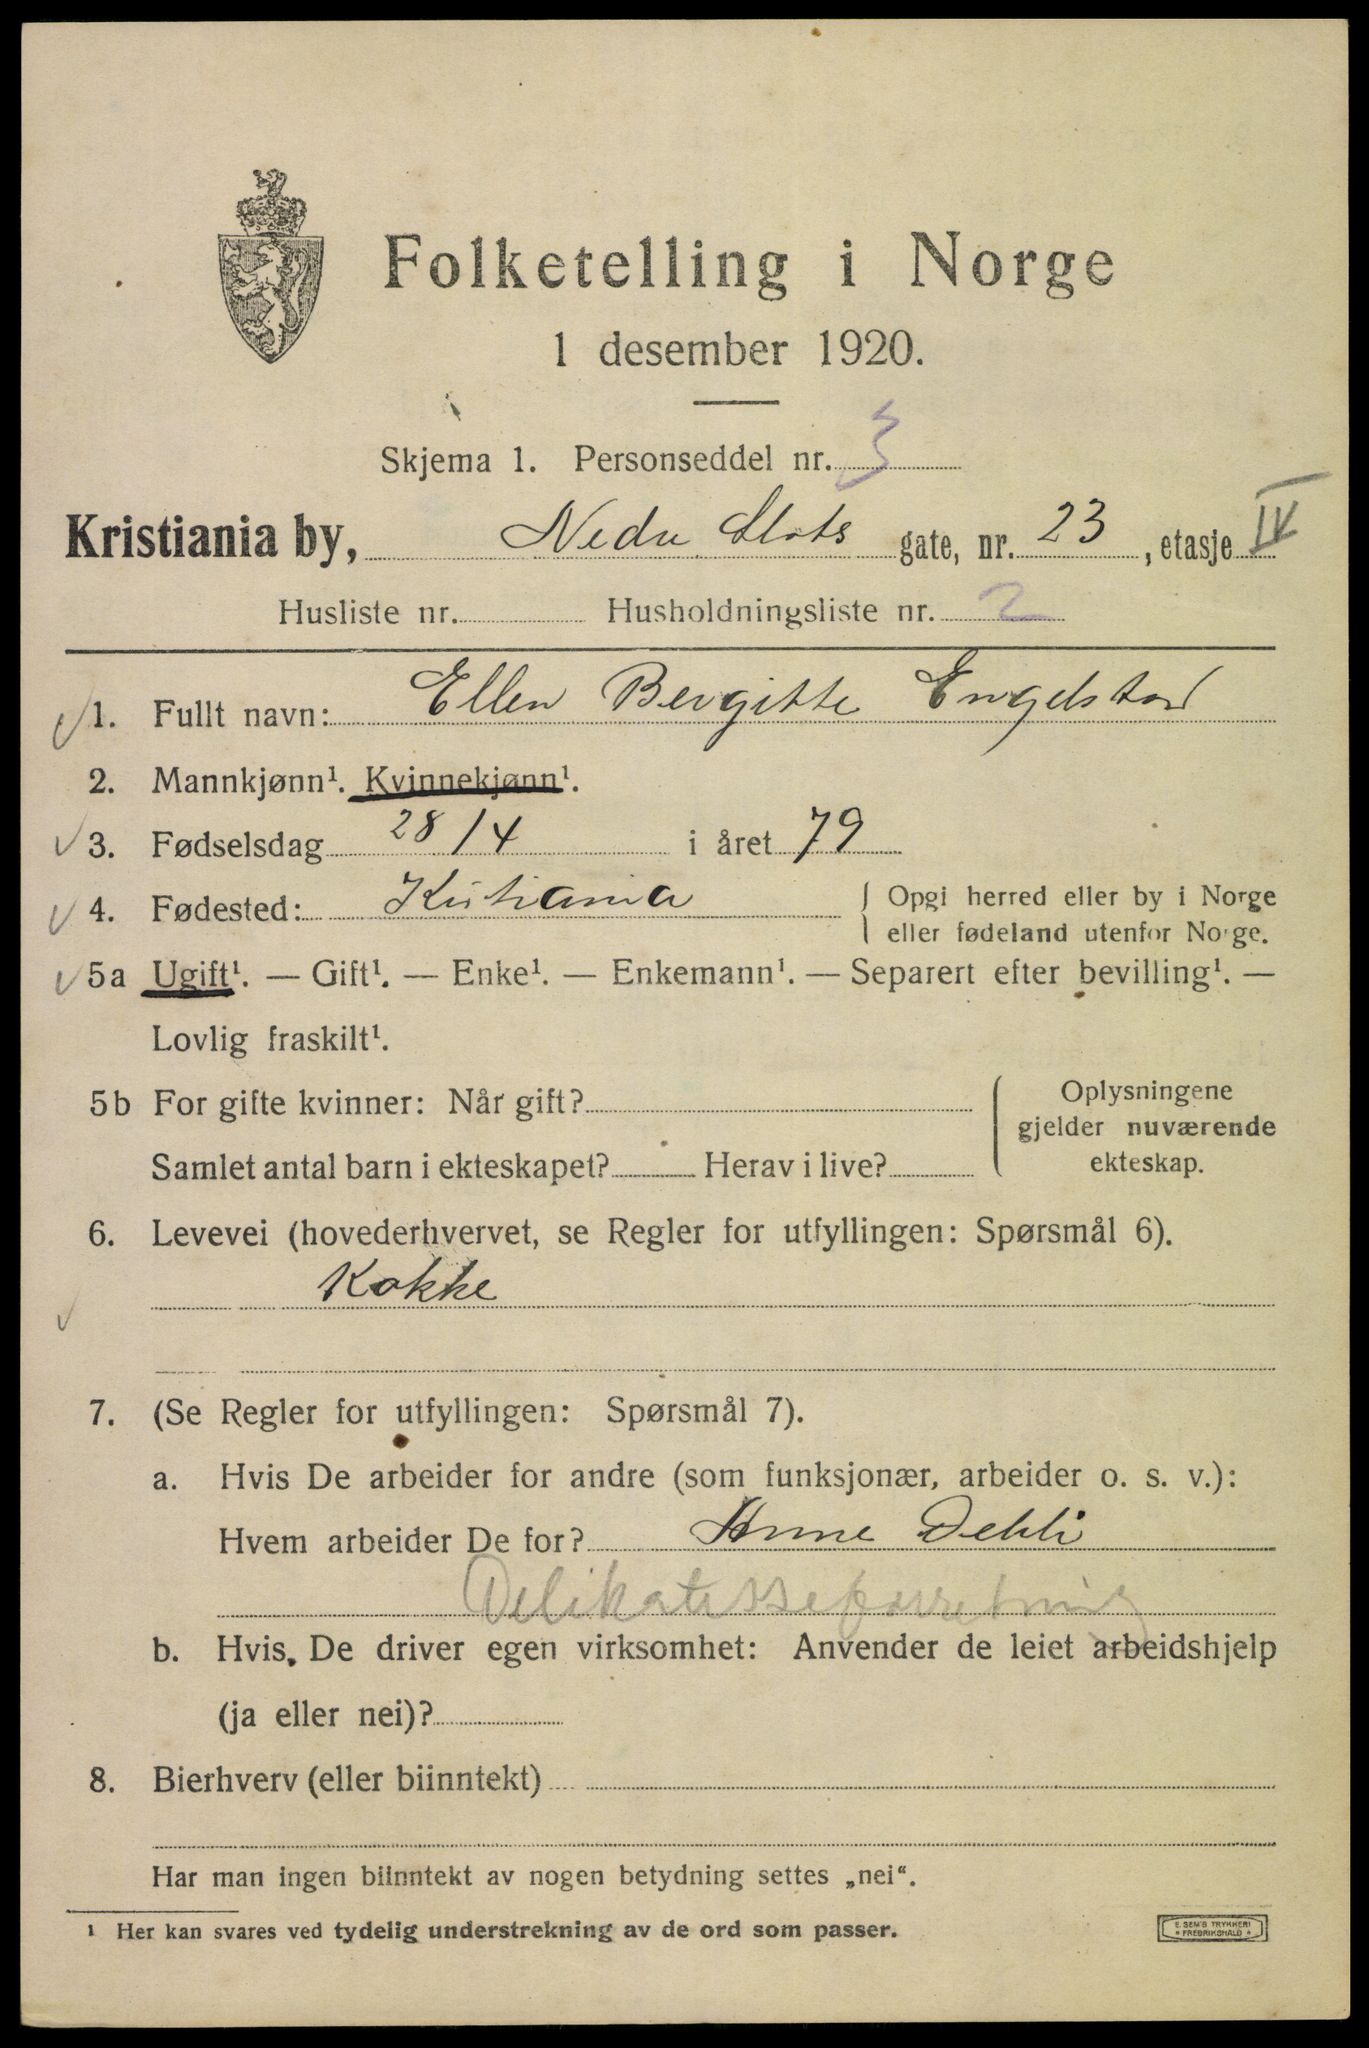 Folketelling i Norge
1 desember 1920.
Skjema 1. Personseddel nr. 3
Kristiania by, Nedre Slots gate, nr. 23, etasje IV
Husliste nr. Husholdningsliste nr. 2
1. Fullt navn: Ellen Bergitte Engelstad
2. Mannkjønn¹. Kvinnekjønn¹.
3. Fødselsdag 28/4 i året 79
4. Fødested: Kristiania
Opgi herred eller by i Norge
eller fødeland utenfor Norge.
5a Ugift¹. — Gift¹. — Enke¹. — Enkemann¹. — Separert efter bevilling¹. —
Lovlig fraskilt¹.
5b For gifte kvinner: Når gift?
Samlet antal barn i ekteskapet? Herav i live?
Oplysningene
gjelder nuværende
ekteskap.
6. Levevei (hovederhvervet, se Regler for utfyllingen: Spørsmål 6).
Kokke
7. (Se Regler for utfyllingen: Spørsmål 7).
a. Hvis De arbeider for andre (som funksjonær, arbeider o. s. v.):
Hvem arbeider De for? Anne Dehli
Delikatesseforretning
b. Hvis De driver egen virksomhet: Anvender de leiet arbeidshjelp
(ja eller nei)?
8. Bierhverv (eller biinntekt)
Har man ingen biinntekt av nogen betydning settes „nei“.
¹ Her kan svares ved tydelig understrekning av de ord som passer.
E. SEM'S TRYKKERI
* FREDRIKSHALD *